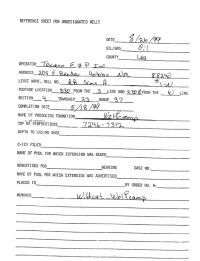 REFERENCE SHEET FOR UNDESIGNATED WELLS
DATE 8/26/99
OIL/GAS Oil
COUNTY Lea
OPERATOR Texaco E & P Inc
ADDRESS 205 E Bender Hobbs NM 88240
LEASE NAME, WELL NO. A.B. Scott A #1-N
FOOTAGE LOCATION 330 FROM THE S LINE AND FROM THE W LINE
SECTION 4 TOWNSHIP 23 RANGE 37
COMPLETION DATE 5/18/99
NAME OF PRODUCING FORMATION Wolfcamp
TOP OF PERFORATIONS 7246-7312
DEPTH TO CASING SHOE
C-123 FILED
NAME OF POOL FOR WHICH EXTENSION WAS ASKED
ADVERTISED FOR HEARING CASE NO
NAME OF POOL FOR WHICH EXTENSION WAS ADVERTISED
PLACED IN BY ORDER NO. R-
REMARKS Wildcat Wolfcamp